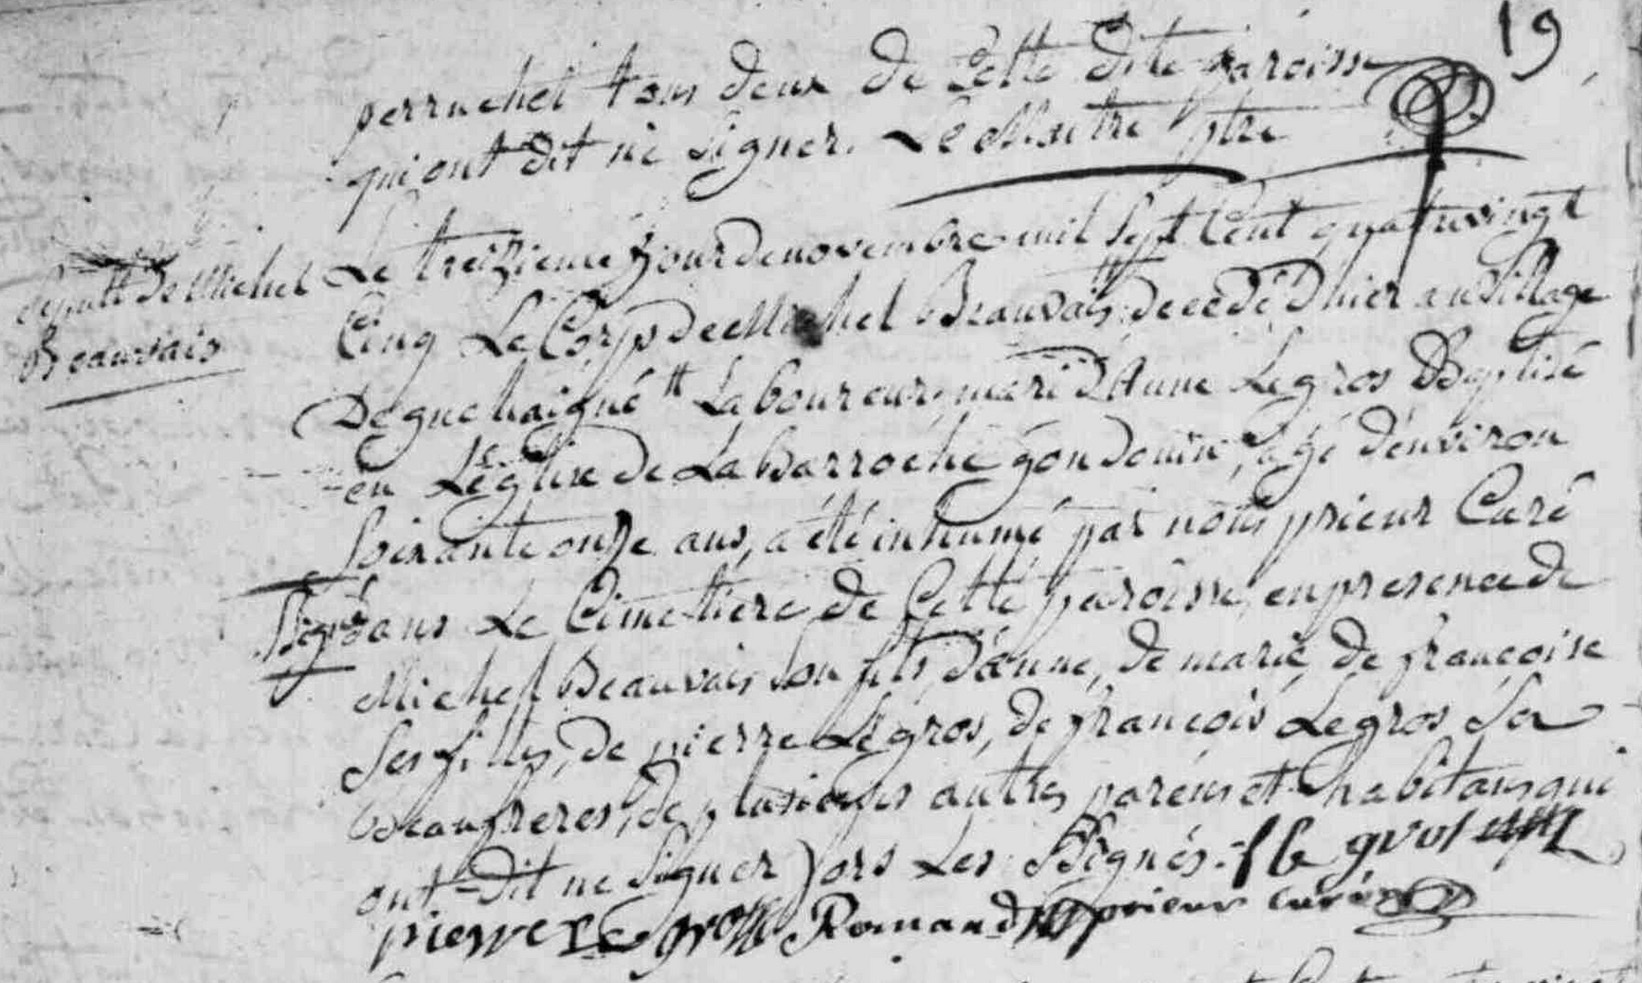 19
perruchel tous deux de Cette dite paroisse
qui ont dit ne signer. Le Maitre ptre
sepult de Michel
Beauvais
Le treizieme jour de novembre mil sept Cent quatrevingt
Cinq Le Corps de Michel Beauvais decedé D'hier au Village
De guehaigné Laboureur, mari D'Anne Legros Baptisé
en L'eglise de La Barroche gondouin, agé d'environ
soixante onze ans, a été inhumé par nous prieur Curé
dans Le Cimetiere de Cette paroisse, en presence de
Michel Beauvais son fils, d'anne, de marie, de françoise
ses filles, de pierre Legros, de françois Legros ses
Beaufreres, de plusieurs autres parens et habitans qui
ont dit ne signer, ors Les signés. f le gros
pierre Le gros Romand prieur curé